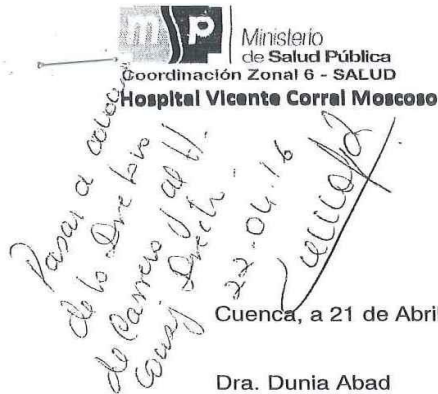 msp
Ministerio
de Salud Pública
Coordinación Zonal 6 - SALUD
Hospital Vicente Corral Moscoso
Pasar a
de la Directora
de Carrera y al H.
Consj Direct.
22-04-16
Cuenca, a 21 de Abril
Dra. Dunia Abad